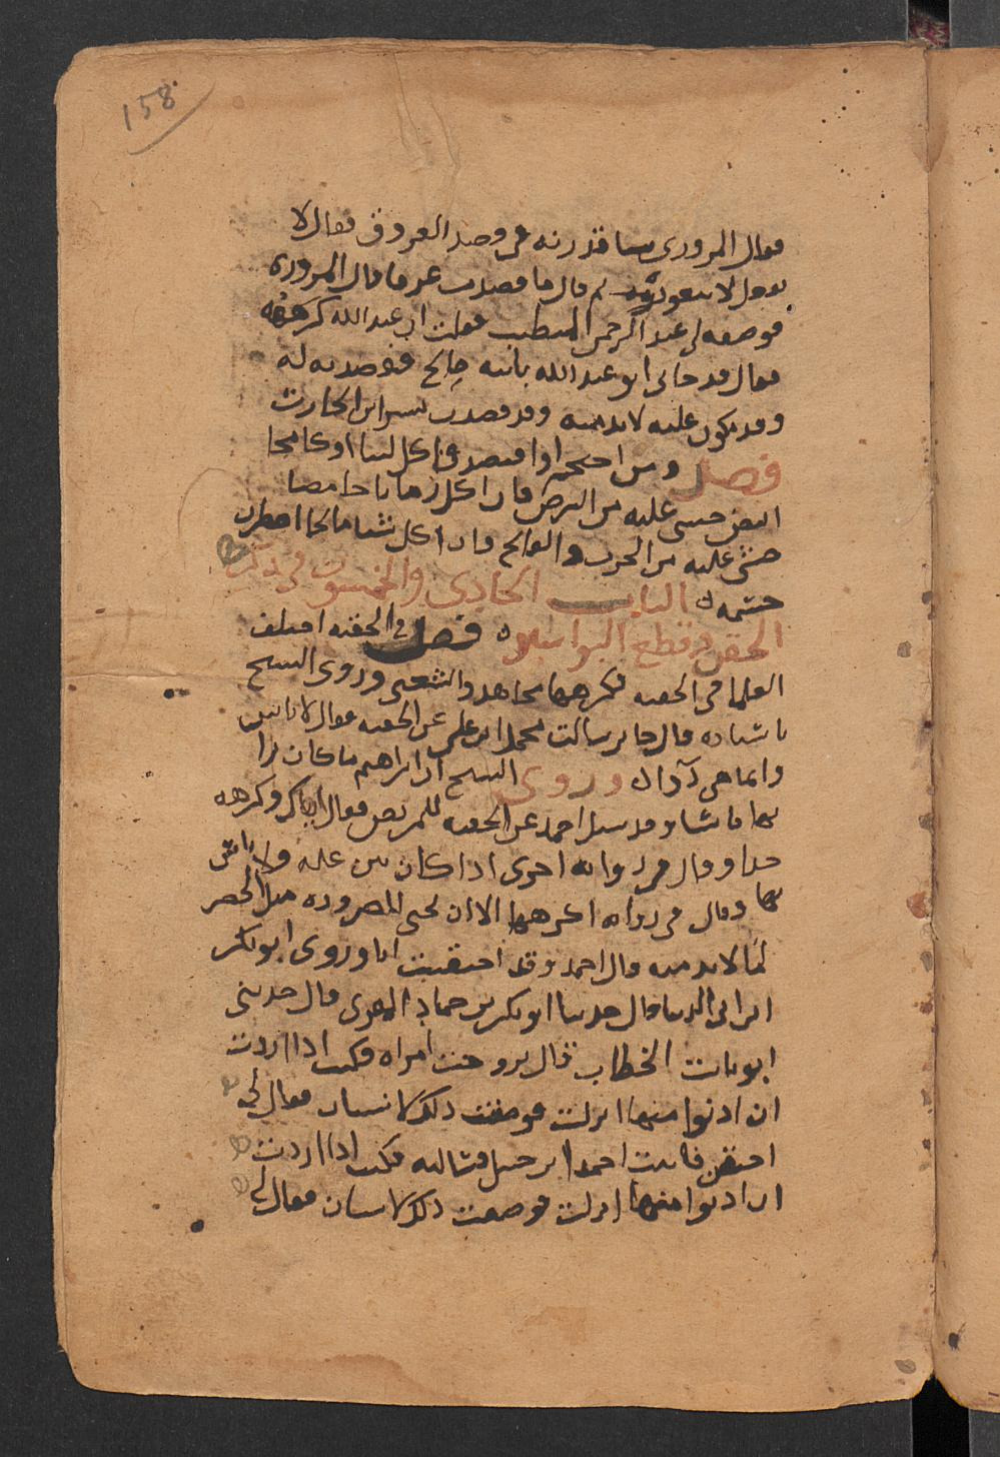 158
فقال المروذي قدرته في فصد العروق فقال لا
تعود ثم قال ما فصدت عرقا قال المروذي
فوصفه لي عبد الرحمن المتطبب فقلت ان عبد الله كرهه
فقال قد جاني ابو عبد الله بانيه ففصدته له
وقد يكون عليه لا بد منه وقد فصدت بشر ابن الحارث
فصل ومن احتجم او افتصد فاكل لبنا او كامخا
ابيض خشي عليه من البرص فان اكل رمانا حامضا
خشي عليه من الجرب والفالج وان اكل شيا مالحا
الباب الحادي والخمسون في ذكر
الحقن وقطع البواسير ه فصل في الحقنه اختلف
العلما في الحقنه فكرهها مجاهد والشعبي وروى الشيخ
باسناده قال جابر سالت محمد ابن علي عن الحقنه فقال لا باس
وانما هي دوا ل وروى الشيخ ان ابراهيم ما كان يرا
بها باسا وقد سيل احمد عن الحقنه للمريض فقال وكرهه
جدا وقال في روايه اخرى اذا كان من عله فلا باس
بها وقال في روايه اكرهها الا ان تجي الضروره مثل الحصر
لما لا بد منه قال احمد وقد احتقنت انا وروى ابو بكر
ابن ابي الدنيا قال حدثنا ابو بكر بن حماد المقري قال حدثني
ابو الخطاب قال تزوجت امراه فكنت اذا اردت
ان ادنوا منها انزلت فوصفت ذلك لانسان فقال لي
احتقن فاتيت احمد ابن حنبل فسالته فكنت اذا اردت
ان ادنوا منها انزلت فوصفت ذلك لانسان فقال لي